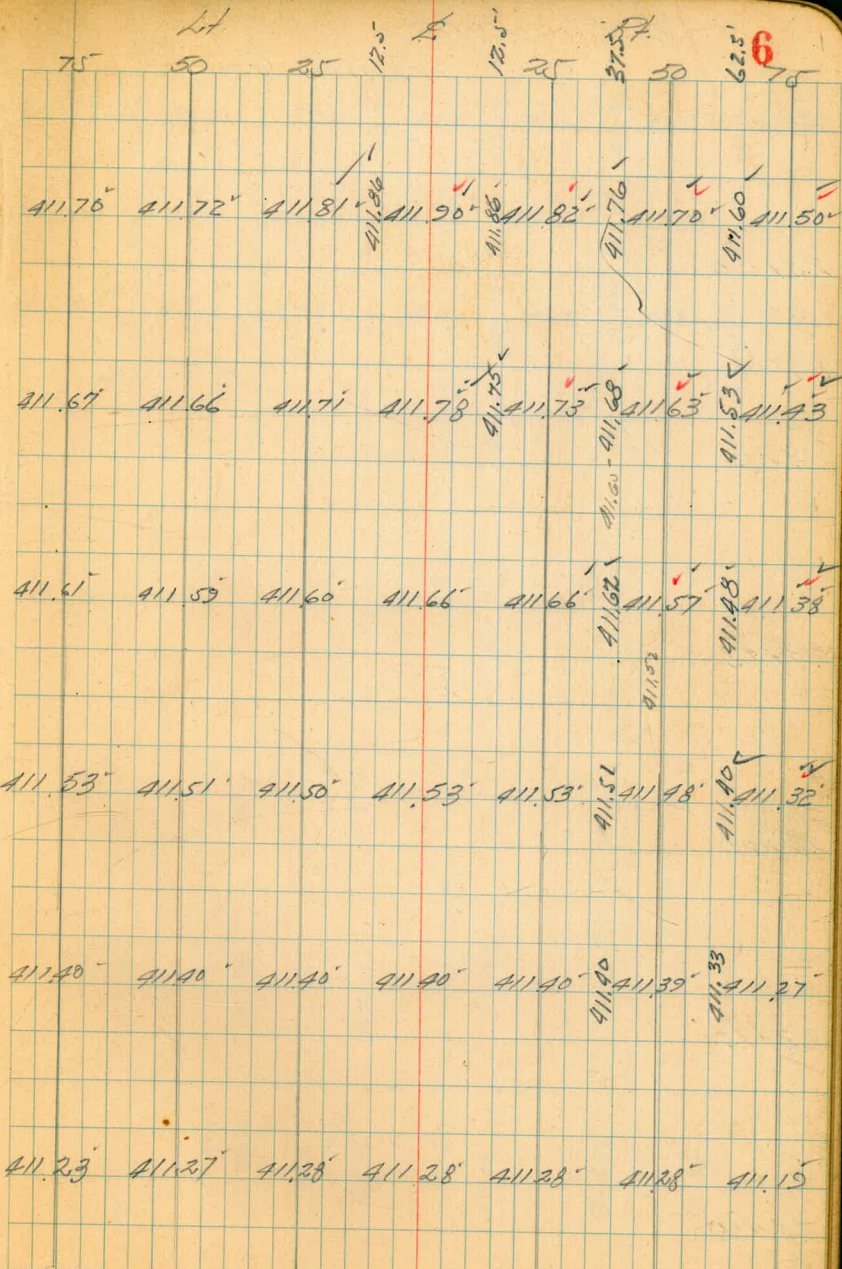 Lt ℄ Rt 6
75 50 25 12.5' 12.5' 25 37.5' 50 62.5' 75
411.76 411.72 411.81 411.86 411.90 411.86 411.82 411.76 411.70 411.60 411.50
411.67 411.66 411.71 411.78 411.75 411.73 411.60 - 411.68 411.63 411.53 411.43
411.61 411.59 411.60 411.66 411.66 411.62 411.57 411.48 411.38
411.52
411.53 411.51 411.50 411.53 411.53 411.51 411.48 411.40 411.32
411.40 411.40 411.40 411.40 411.40 411.40 411.39 411.33 411.27
411.23 411.27 411.28 411.28 411.28 411.28 411.19